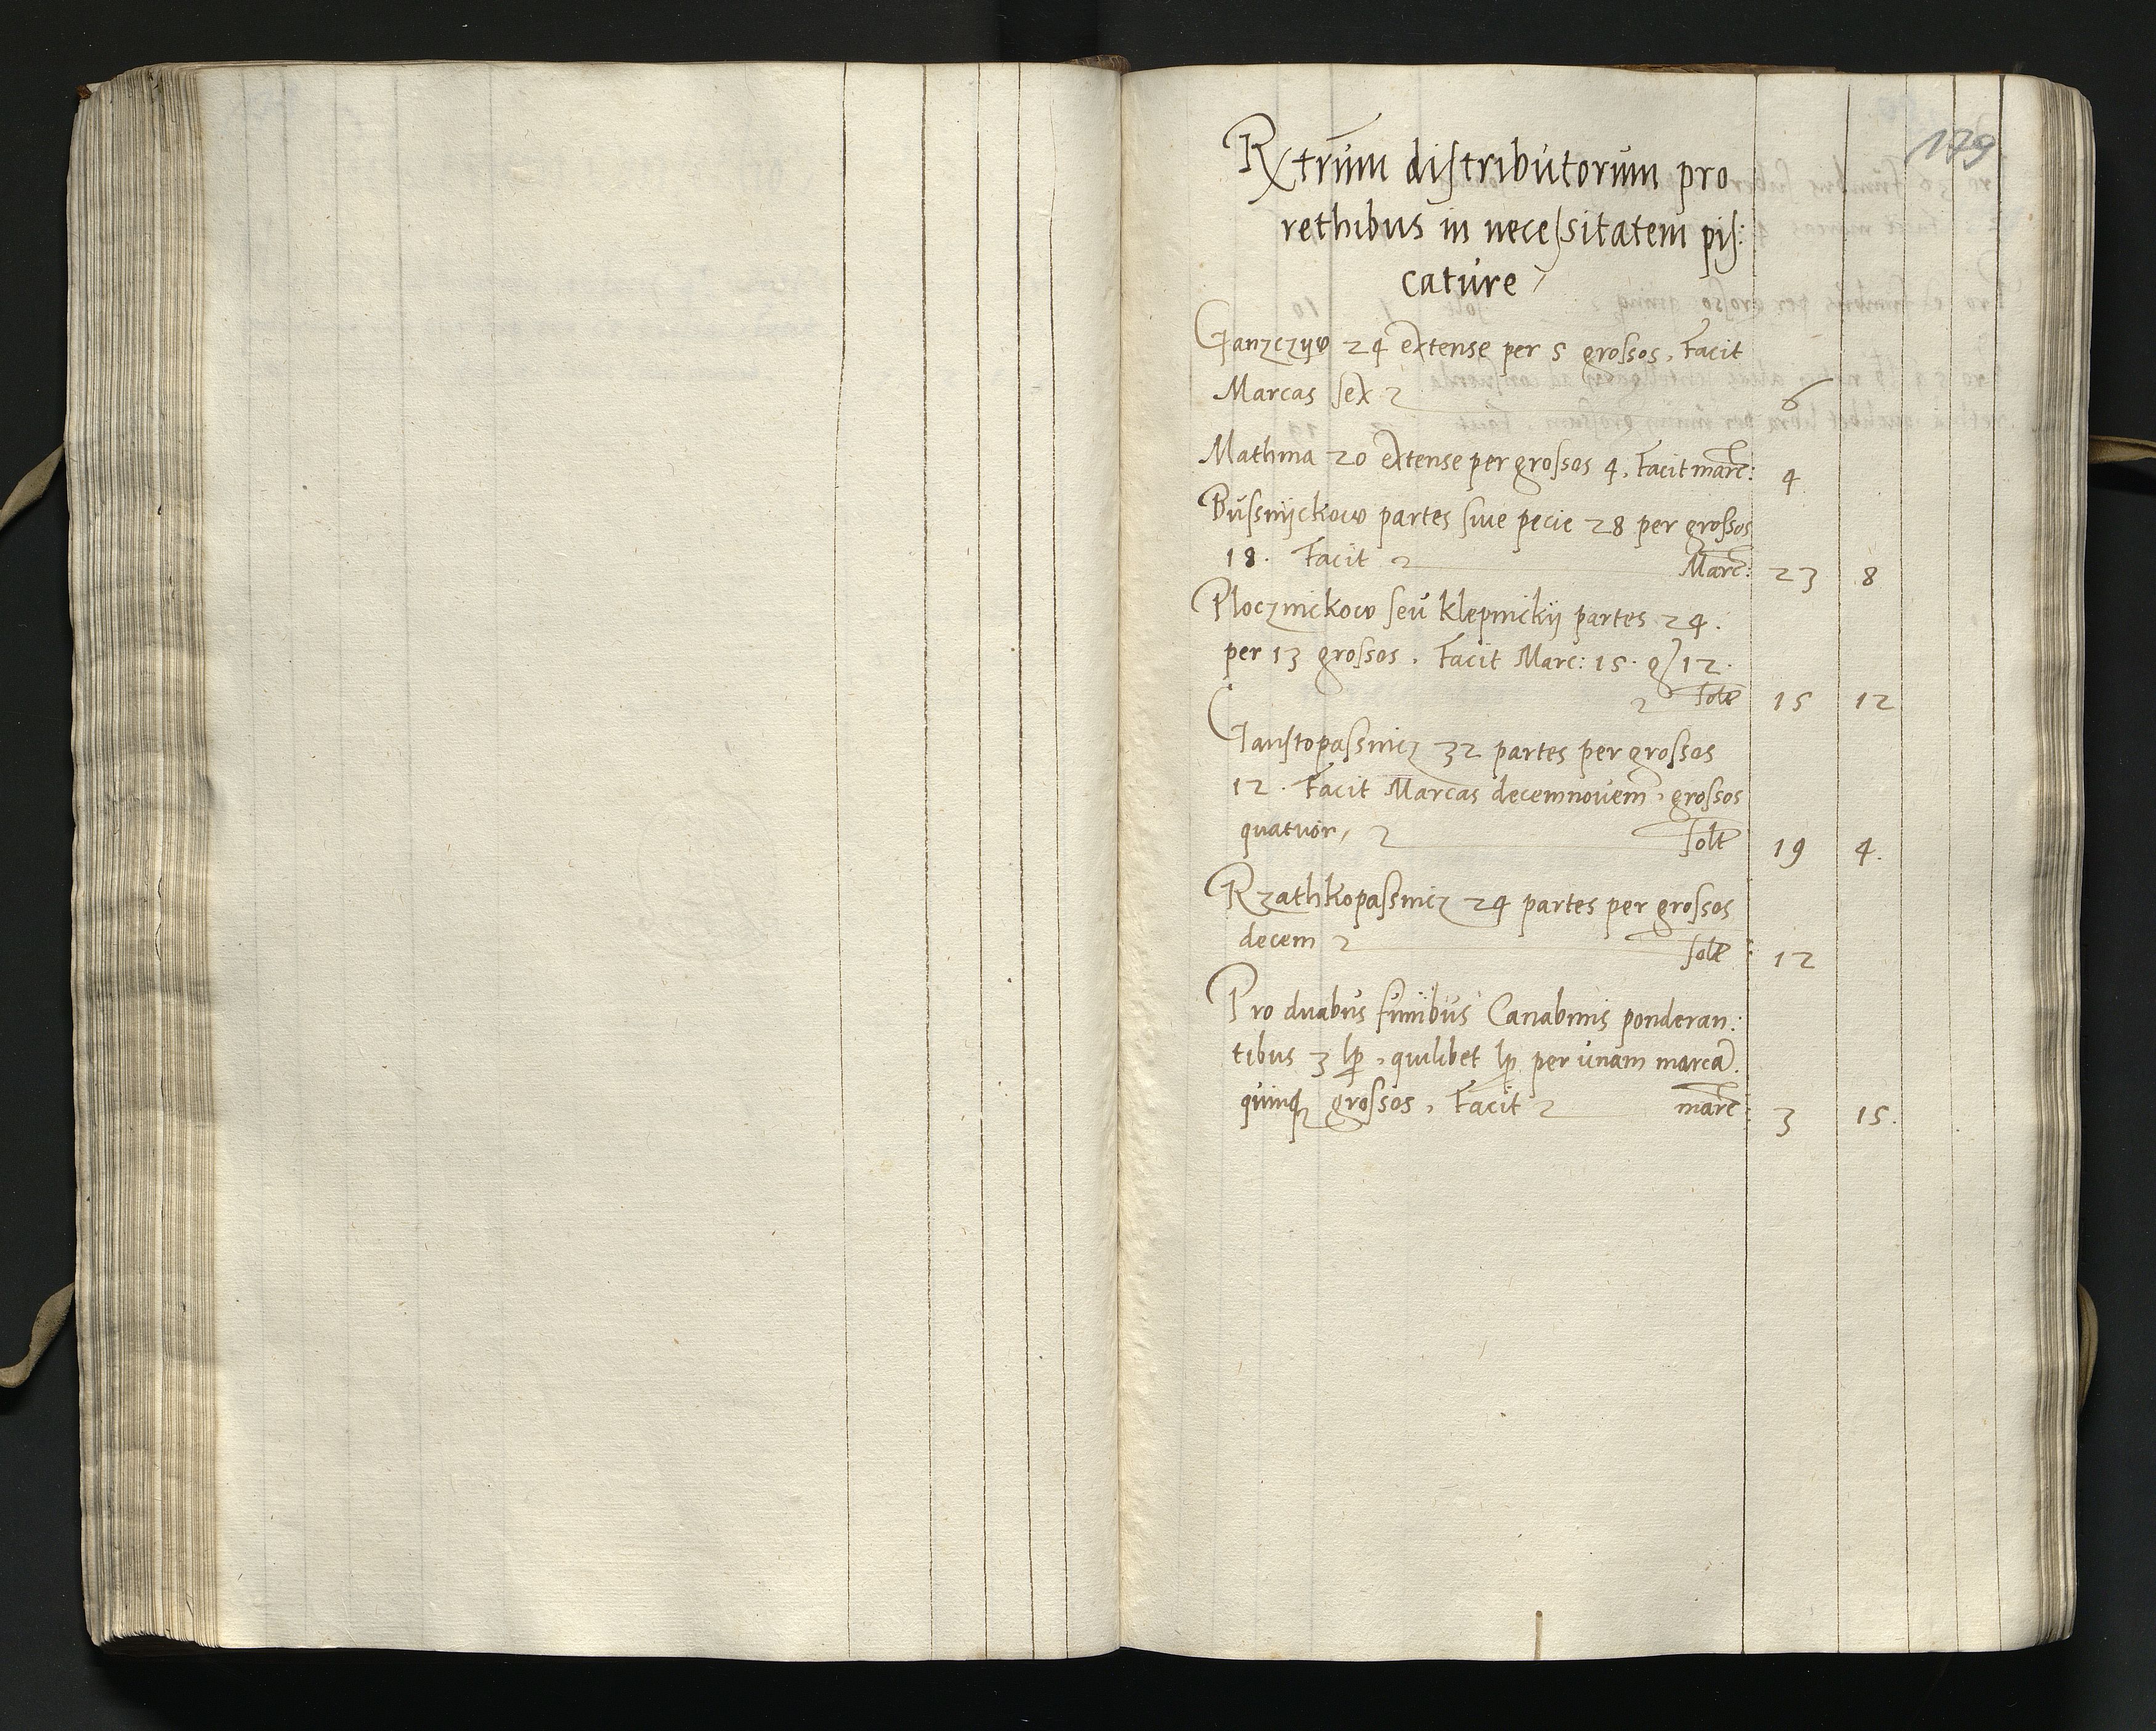 179
Rxtrum distributorum pro
rethibus in necessitatem pis:
cature
Ganzczyw 24 extense per 5 grossos, Facit
Marcas sex 6
Mathnia 20 extense per grossos 4, Facit marc: 4
Bussnyckow partes siue pecie 28 per grossos
18. Facit Marc: 23 8
Plocznickow seu klepnickij partes 24.
per 13 grossos. Facit Marc: 15. g 12.
solt 15 12
Ganstopassnicz 32 partes per grossos
12. Facit Marcas decemnouem, grossos
quatuor, solt 19 4.
Rzathkopassnicz 24 partes per grossos
decem solt 12
Pro duabus funibus Canabinis ponderan:
tibus 3 lp, quilibet lp per unam marca.
quinq grossos, Facit marc: 3 15.